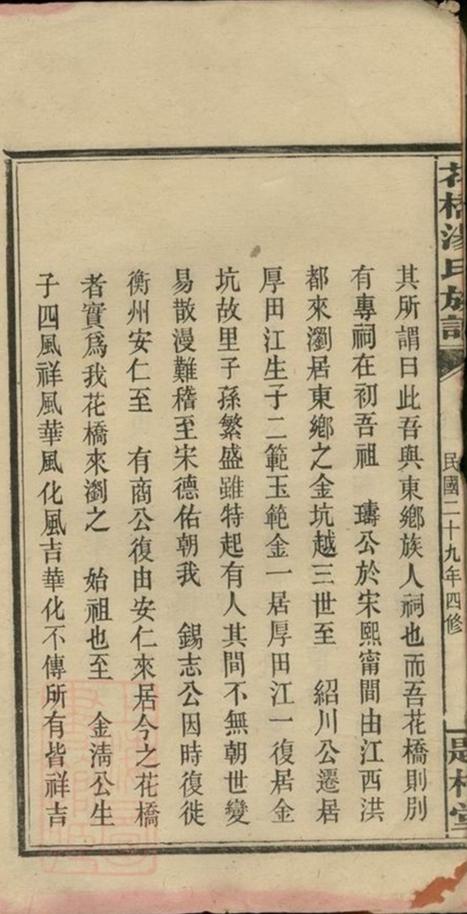 花橋湯氏族譜
民國二十九年四修
其所謂曰此吾與東鄉族人祠也而吾花橋則別
有專祠在初吾祖 璹公於宋熙甯間由江西洪
都來瀏居東鄉之金坑越三世至 紹川公遷居
厚田江生子二範玉範金一居厚田江一復居金
坑故里子孫繁盛雖特起有人其間不無朝世變
易散漫難稽至宋德佑朝我 錫志公因時復徙
衡州安仁至 有商公復由安仁來居今之花橋
者實爲我花橋來瀏之 始祖也至 金淸公生
子四風祥風華風化風吉華化不傳所有皆祥吉